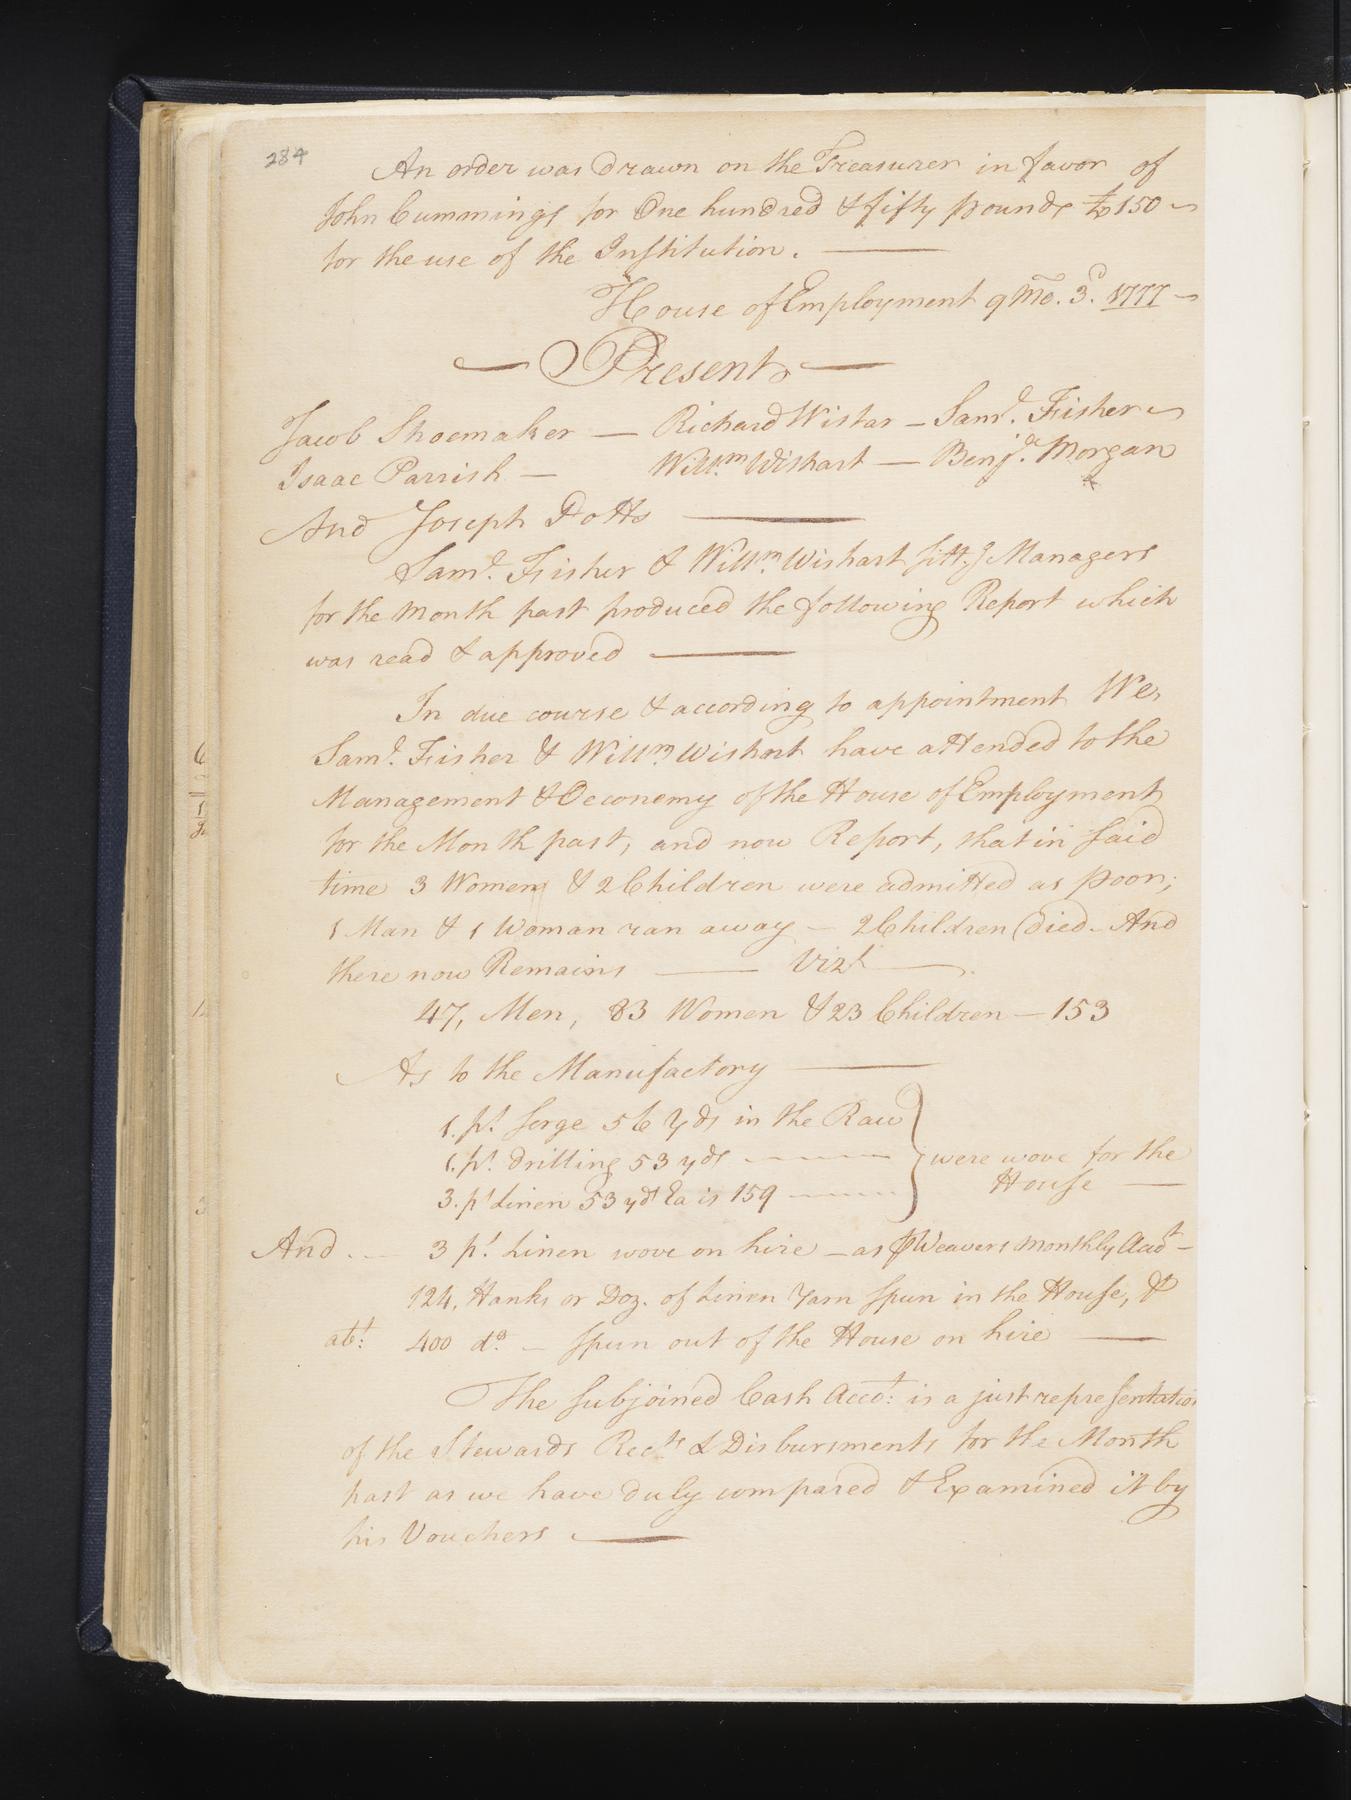 284
An order was Drawn on the Treasurer in favor of
John Cummings for One hundred & fifty pounds £150
for the use of the Institution.
House of Employment 9 Mo. 3d. 1777
Present
Jacob Shoemaker — Richard Wistar — Saml. Fisher
Isaac Parrish — Willm. Wishart — Benja. Morgan
And Joseph Potts
Saml. Fisher & Willm. Wishart sittg. Managers
for the Month past produced the following Report which
was read & approved
In due course & according to appointment We,
Saml. Fisher & Willm. Wishart have attended to the
Management & Oeconomy of the House of Employment
for the Month past, and now Report, that in said
time 3 Women & 2 Children were admitted as poor;
1 Man & 1 Woman ran away — 2 Children Died. And
there now Remains — Vizt.
47, Men, 83 Women & 23 Children — 153
As to the Manufactory
1. ps. serge 56 yds in the Raw
1. ps. drilling 53 yds } were wove for the
3. ps Linen 53 yds Ea is 159 House
And — 3 ps. Linen wove on hire — as ⅌ Weavers monthly Acct —
124, Hanks or Doz. of Linen Yarn spun in the House, &
abt. 400 do. — spun out of the House on hire
The subjoined Cash Accot: is a just representation
of the Stewards Rects & Disbursments for the Month
past as we have duly compared & Examined it by
his Vouchers